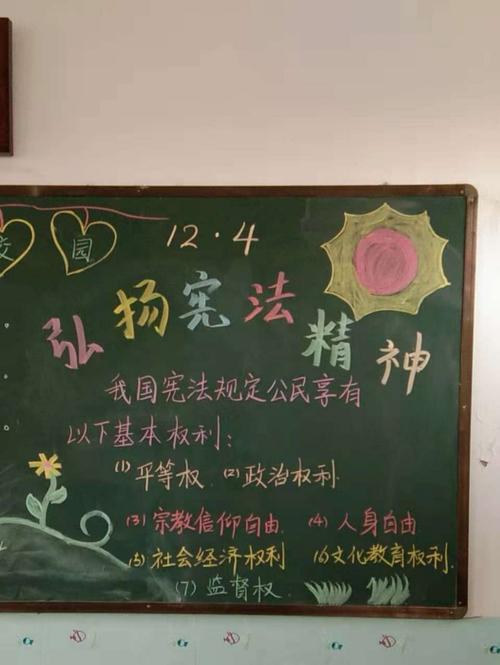 校园
12·4
弘扬宪法精神
我国宪法规定公民享有
以下基本权利:
(1) 平等权 (2) 政治权利
(3) 宗教信仰自由 (4) 人身自由
(5) 社会经济权利 (6) 文化教育权利
(7) 监督权